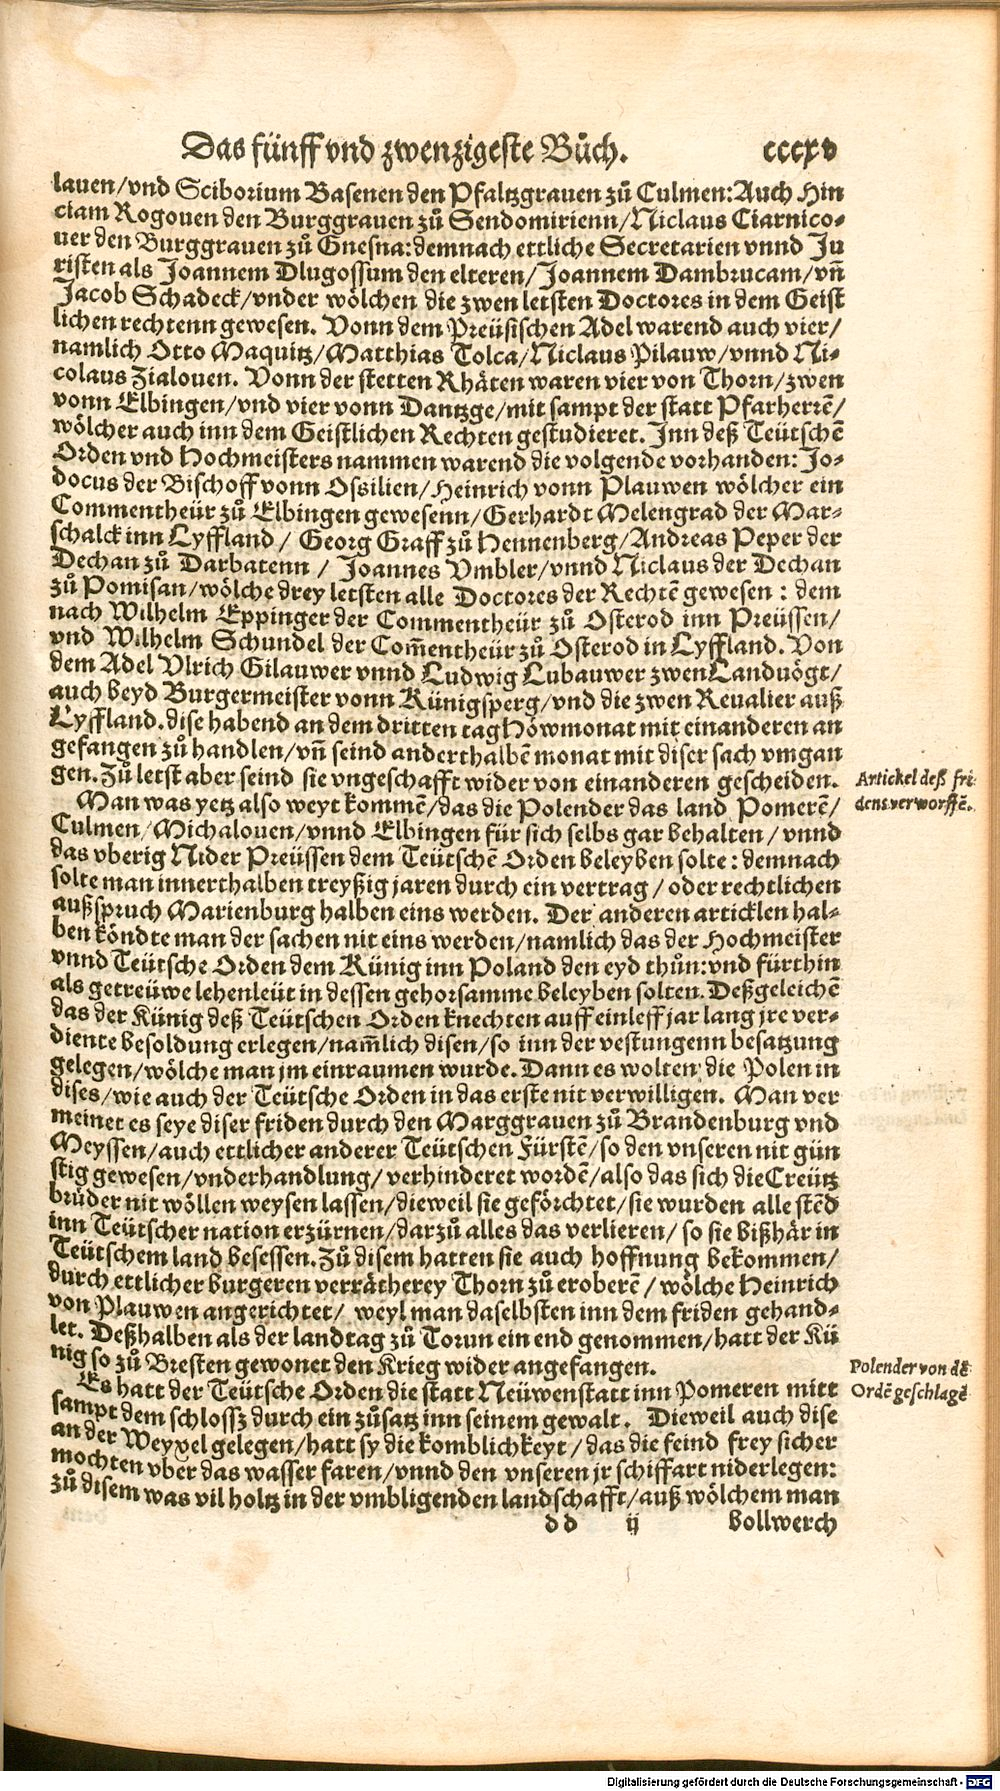 Das fünff vnd zwenzigeste Bůch. cccxv
lauen/vnd Sciborium Basenen den Pfaltzgrauen zů Culmen: Auch Hin
ciam Rogouen den Burggrauen zů Sendomirienn/Niclaus Ciarnico-
uer den Burggrauen zů Gnesna: demnach ettliche Secretarien vnnd Ju
risten als Joannem Dlugossum den elteren/Joannem Dambrucam/vñ
Jacob Schadeck/vnder wölchen die zwen letsten Doctores in dem Geist
lichen rechtenn gewesen. Vonn dem Preüsischen Adel warend auch vier/
namlich Otto Maquitz/Matthias Tolca/Niclaus Pilauw/vnnd Ni-
colaus Zialouen. Vonn der stetten Rhäten waren vier von Thorn/zwen
vonn Elbingen/vnd vier vonn Dantzge/mit sampt der statt Pfarherrẽ/
wölcher auch inn dem Geistlichen Rechten gestudieret. Inn deß Teütschẽ
Orden vnd Hochmeisters nammen warend die volgende vorhanden: Jo-
docus der Bischoff vonn Ossilien/Heinrich vonn Plauwen wölcher ein
Commentheür zů Elbingen gewesenn/Gerhardt Melengrad der Mar-
schalck inn Lyffland/ Georg Graff zů Hennenberg/Andreas Peper der
Dechan zů Darbatenn / Joannes Vmbler/vnnd Niclaus der Dechan
zů Pomisan/wölche drey letsten alle Doctores der Rechtẽ gewesen: dem
nach Wilhelm Eppinger der Commentheür zů Osterod inn Preüssen/
vnd Wilhelm Schundel der Com̃entheür zů Osterod in Lyffland. Von
dem Adel Vlrich Gilauwer vnnd Ludwig Lubauwer zwen Landuögt/
auch beyd Burgermeister vonn Künigsperg/vnd die zwen Reualier auß
Lyffland. dise habend an dem dritten tag Höwmonat mit einanderen an
gefangen zů handlen/vñ seind anderthalbẽ monat mit diser sach vmgan
gen. Zů letst aber seind sie vngeschafft wider von einanderen gescheiden.
Artickel deß fri-
dens verworffẽ.
Man was yetz also weyt kommẽ/das die Polender das land Pomerẽ/
Culmen/Michalouen/vnnd Elbingen für sich selbs gar behalten/vnnd
das vberig Nider Preüssen dem Teütschẽ Orden beleyben solte: demnach
solte man innerthalben treyßig jaren durch ein vertrag/oder rechtlichen
außspruch Marienburg halben eins werden. Der anderen articklen hal-
ben köndte man der sachen nit eins werden/namlich das der Hochmeister
vnnd Teütsche Orden dem Künig inn Poland den eyd thůn: vnd fürthin
als getreüwe lehenleüt in dessen gehorsamme beleyben solten. Deßgeleichẽ
das der Künig deß Teütschen Orden knechten auff einleff jar lang jre ver-
diente besoldung erlegen/nam̃lich disen/so inn der vestungenn besatzung
gelegen/wölche man jm einraumen wurde. Dann es wolten die Polen in
dises/wie auch der Teütsche Orden in das erste nit verwilligen. Man ver
meinet es seye diser friden durch den Marggrauen zů Brandenburg vnd
Meyssen/auch ettlicher anderer Teütschen Fürstẽ/so den vnseren nit gün
stig gewesen/vnderhandlung/verhinderet wordẽ/also das sich die Creütz
brüder nit wöllen weysen lassen/dieweil sie geförchtet/sie wurden alle stẽd
inn Teütscher nation erzürnen/darzů alles das verlieren/so sie bißhär in
Teütschem land besessen. Zů disem hatten sie auch hoffnung bekommen/
durch ettlicher burgeren verrätherey Thorn zů eroberẽ/wölche Heinrich
von Plauwen angerichtet/ weyl man daselbsten inn dem friden gehand-
let. Deßhalben als der landtag zů Torun ein end genommen/hatt der Kü
nig so zů Bresten gewonet den Krieg wider angefangen.
Polender von dẽ
Ordẽ geschlagẽ
Es hatt der Teütsche Orden die statt Neüwenstatt inn Pomeren mitt
sampt dem schlossz durch ein zůsatz inn seinem gewalt. Dieweil auch dise
an der Weyxel gelegen/hatt sy die komblichkeyt/das die feind frey sicher
mochten vber das wasser faren/vnnd den vnseren jr schiffart niderlegen:
zů disem was vil holtz in der vmbligenden landschafft/auß wölchem man
dd ij bollwerch
Digitalisierung gefördert durch die Deutsche Forschungsgemeinschaft - DFG